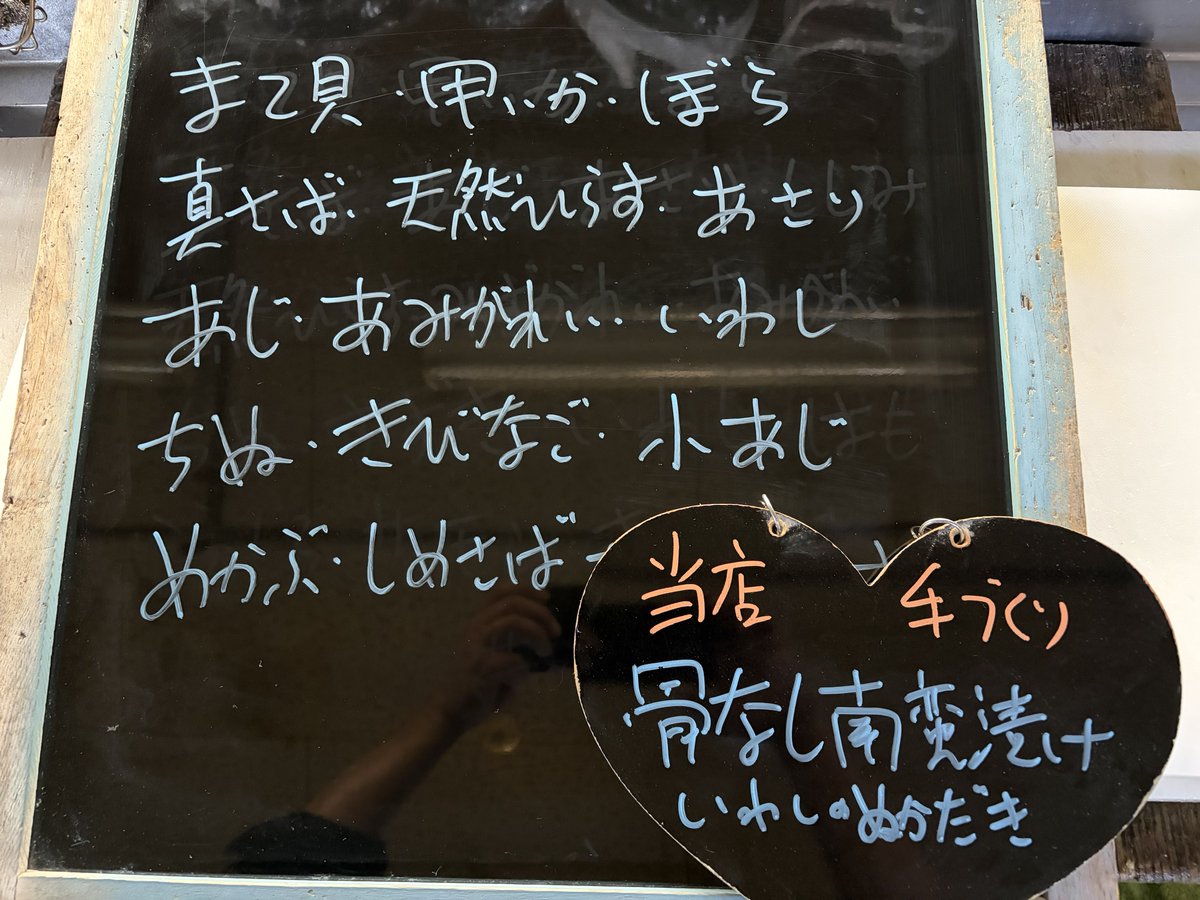 まて貝・甲いか・ぼら
真さば・天然ひらす・あさり
あじ・あみがれい・いわし
ちぬ・きびなご・小あじ
めかぶ・しめさば
当店 手づくり
骨なし南蛮漬け
いわしのぬかだき